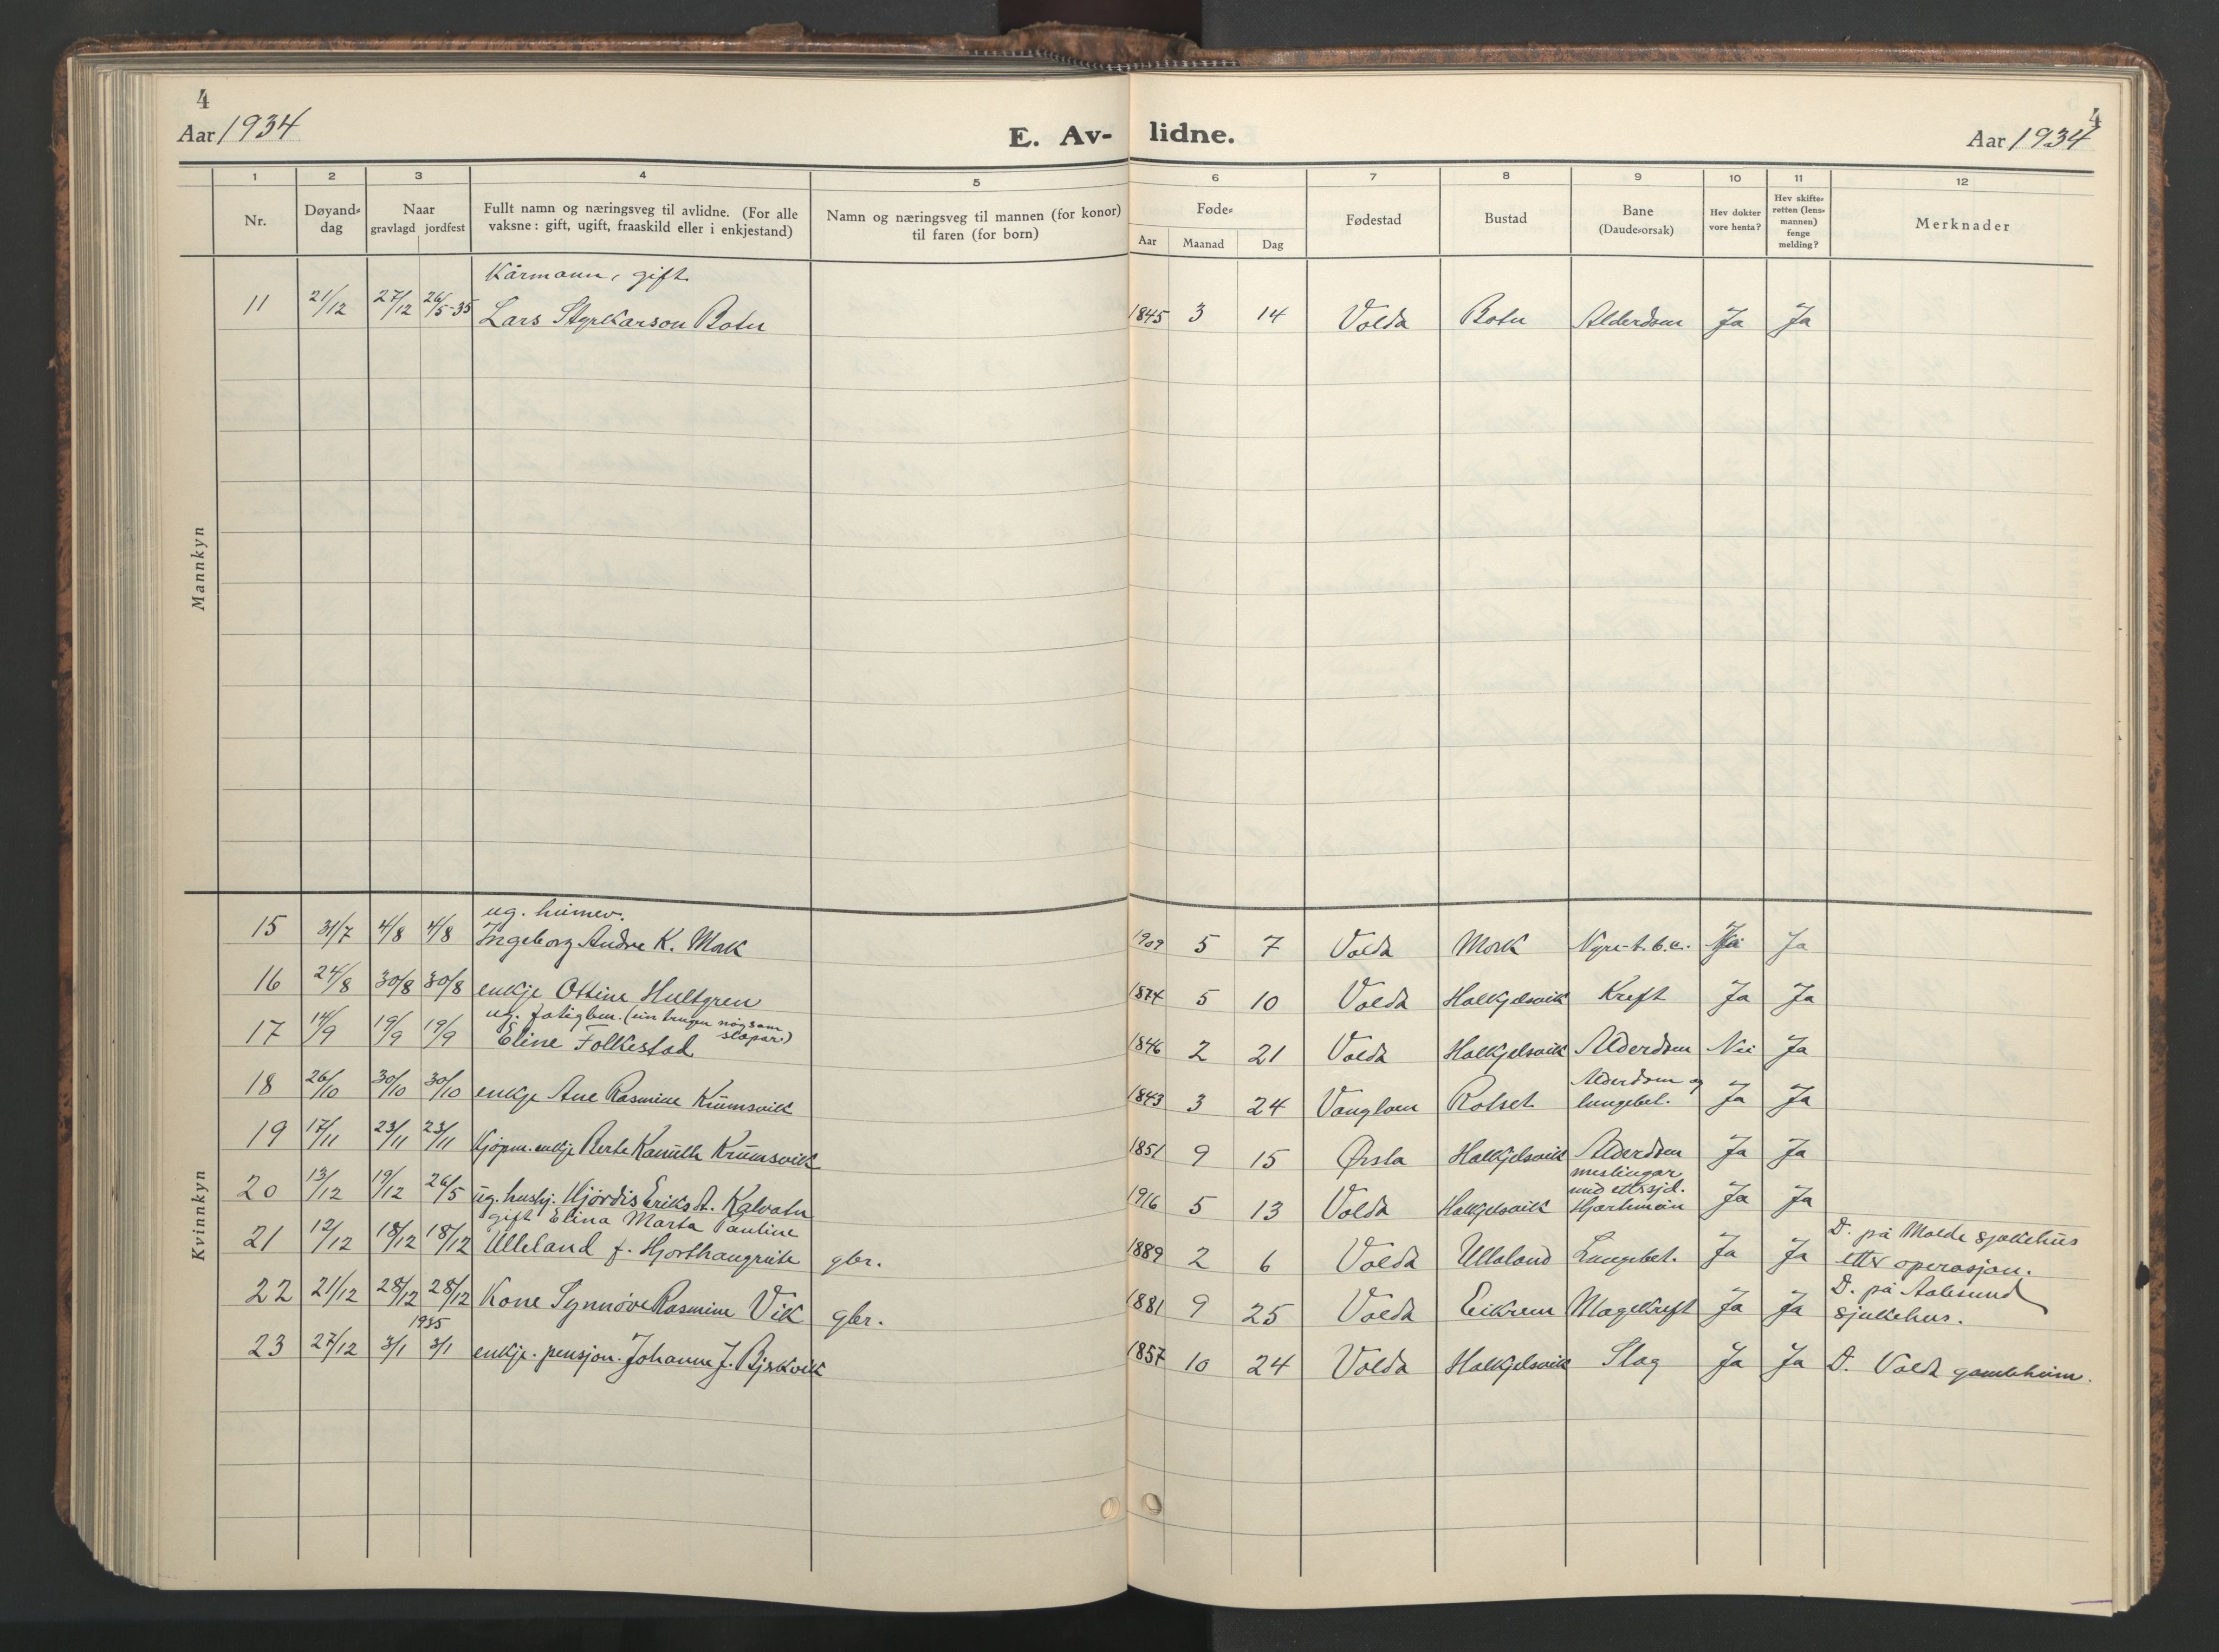 4
4
Aar 1934
E. Av-
lidne.
Aar 1934
1 2 3 4 5 6 7 8 9 10 11 12
Nr.
Døyand-dag
Naar
gravlagd jordfest
Fullt namn og næringsveg til avlidne. (For alle
vaksne: gift, ugift, fraaskild eller i enkjestand)
Namn og næringsveg til mannen (for konor)
til faren (for born)
Føde-
Aar Maanad Dag
Fødestad
Bustad
Bane
(Daude-orsak)
Hev dokter
vore henta?
Hev skifte-
retten (lens-
mannen)
fenge
melding?
Merknader
Mannkyn
Kårmann, gift
11 21/12 27/12 26/5-35 Lars Styrkarson Botn 1845 3 14 Volda Botn Alderdom Ja Ja
Kvinnkyn
ug. heimev.
15 31/7 4/8 4/8 Ingeborg Andre K. Mork 1909 5 7 Volda Mork Nyre-t.b.c. Ja
16 24/8 30/8 30/8 enkje Ottine Hultgren 1874 5 10 Volda Halkjelsvik Kreft Ja Ja
ug. fatiglem.
17 14/9 19/9 19/9 Eline Folkestad 1846 2 21 Volda Halkjelsvik Alderdom Nei Ja
Alderdom og
18 26/10 30/10 30/10 enkje Ane Rasmine Krumsvik 1843 3 24 Rotset lungebet. Ja Ja
19 17/11 23/11 23/11 Kjøpm. enkje Berte Kamille Krumsvik 1851 9 15 Ørsta Halkjelsvik Alderdom Ja Ja
meslingar
med ettersjd.
20 13/12 19/12 26/5 ug. hushj. Hjördis Eriks d. Kalvatn 1916 5 13 Volda Halkjelsvik Ja Ja
gift Elina Marta Pauline
21 12/12 18/12 18/12 Ulleland f. Hjorthaugreite gbr. 1889 2 6 Volda Ulleland Lungebet. Ja Ja D. på Molde sjukehus
etter operasjon.
22 21/12 28/12 28/12 Kone Synnøve Rasmine Vik gbr. 1881 9 25 Volda Eikrem Magekreft Ja Ja D. på Aalesund
sjukehus.
1935
23 27/12 3/1 3/1 enkje. pensjon. Johanne J. Bjerkvik 1857 10 24 Volda Halkjelsvik Slag Ja Ja D. Volda gamleheim.